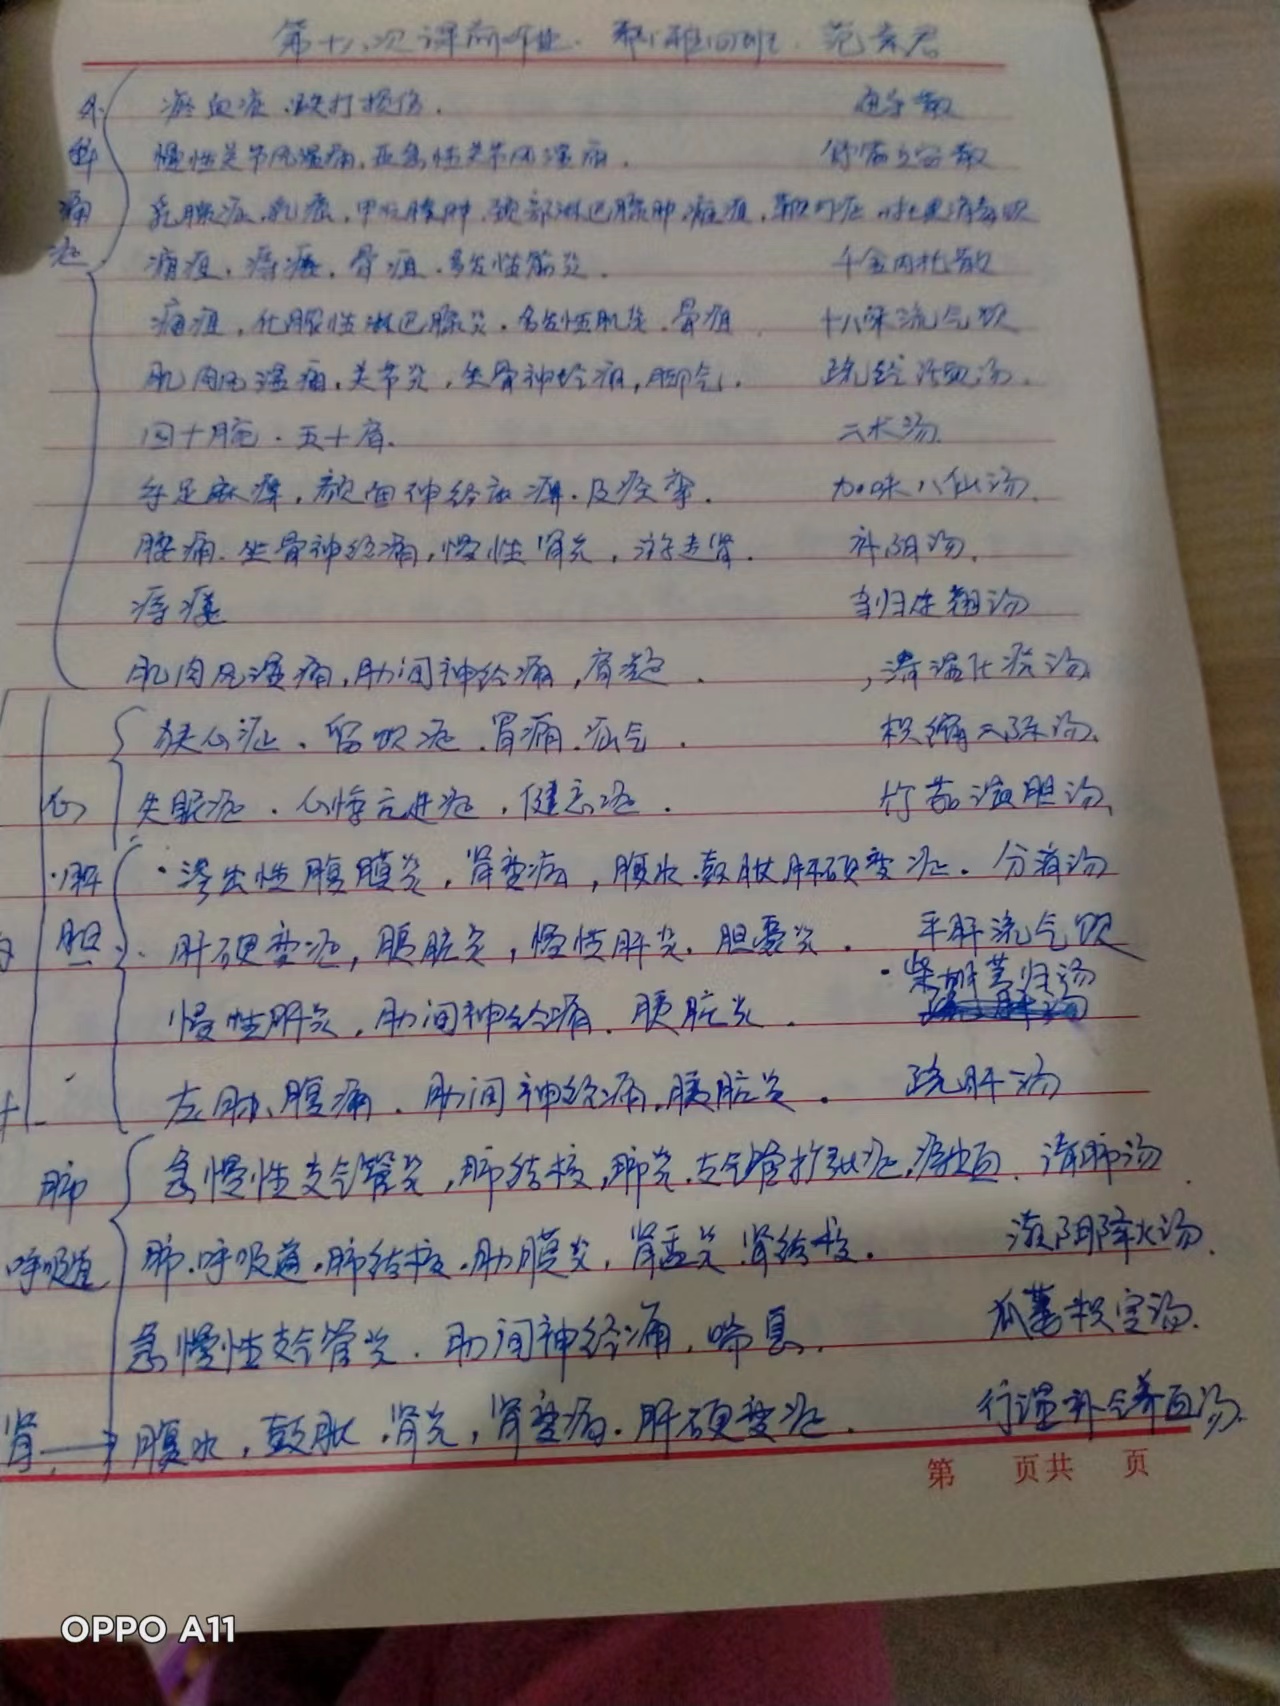 第十八次课前作业. 范
外科痛症
瘀血症.跌打损伤. 散
慢性关节风湿痛.亚急性关节风湿痛. 舒筋立安散
乳腺症.乳癌,甲状腺肿.颈部淋巴腺肿.痈疽,
痈疽,痔瘘.骨疽.多发性筋炎. 千金内托散
痈疽,化脓性淋巴腺炎.多发性肌炎.骨疽. 十八味流气饮
肌肉风湿痛,关节炎,坐骨神经痛,脚气. 疏经活血汤.
四十腕.五十肩. 二术汤.
手足麻痹,颜面神经麻痹.及痉挛. 加味八仙汤.
腰痛.坐骨神经痛,慢性肾炎,游走肾. 补阴汤.
痔瘘 当归连翘汤
肌肉风湿痛,肋间神经痛,肩凝. 清湿化痰汤.
心
狭心症、留饮症.胃痛.疝气. 枳缩二陈汤.
失眠症.心悸亢进症.健忘症. 竹茹温胆汤.
肝胆
·渗出性腹膜炎,肾变病,腹水.鼓胀.肝硬变症. 分消汤
肝硬变症,胰脏炎,慢性肝炎.胆囊炎. 平肝流气饮
·柴胡芎归汤
慢性肝炎,肋间神经痛.胰脏炎.
左肋、腹痛.肋间神经痛.胰脏炎. 疏肝汤
肺
急慢性支气管炎,肺结核,肺炎.支气管扩张症. 清肺汤
呼吸道
肺.呼吸道.肺结核.肋膜炎,肾盂炎.肾结核. 滋阴降火汤.
急慢性支气管炎.肋间神经痛,喘息. 瓜蒌枳实汤.
肾→腹水,鼓胀.肾炎,肾变病.肝硬变症. 行湿补气养血汤.
第 页共 页
OPPO A11